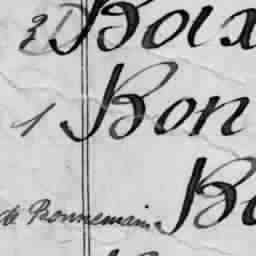 2 Boix
1 Bon
de Bonnemain Bo